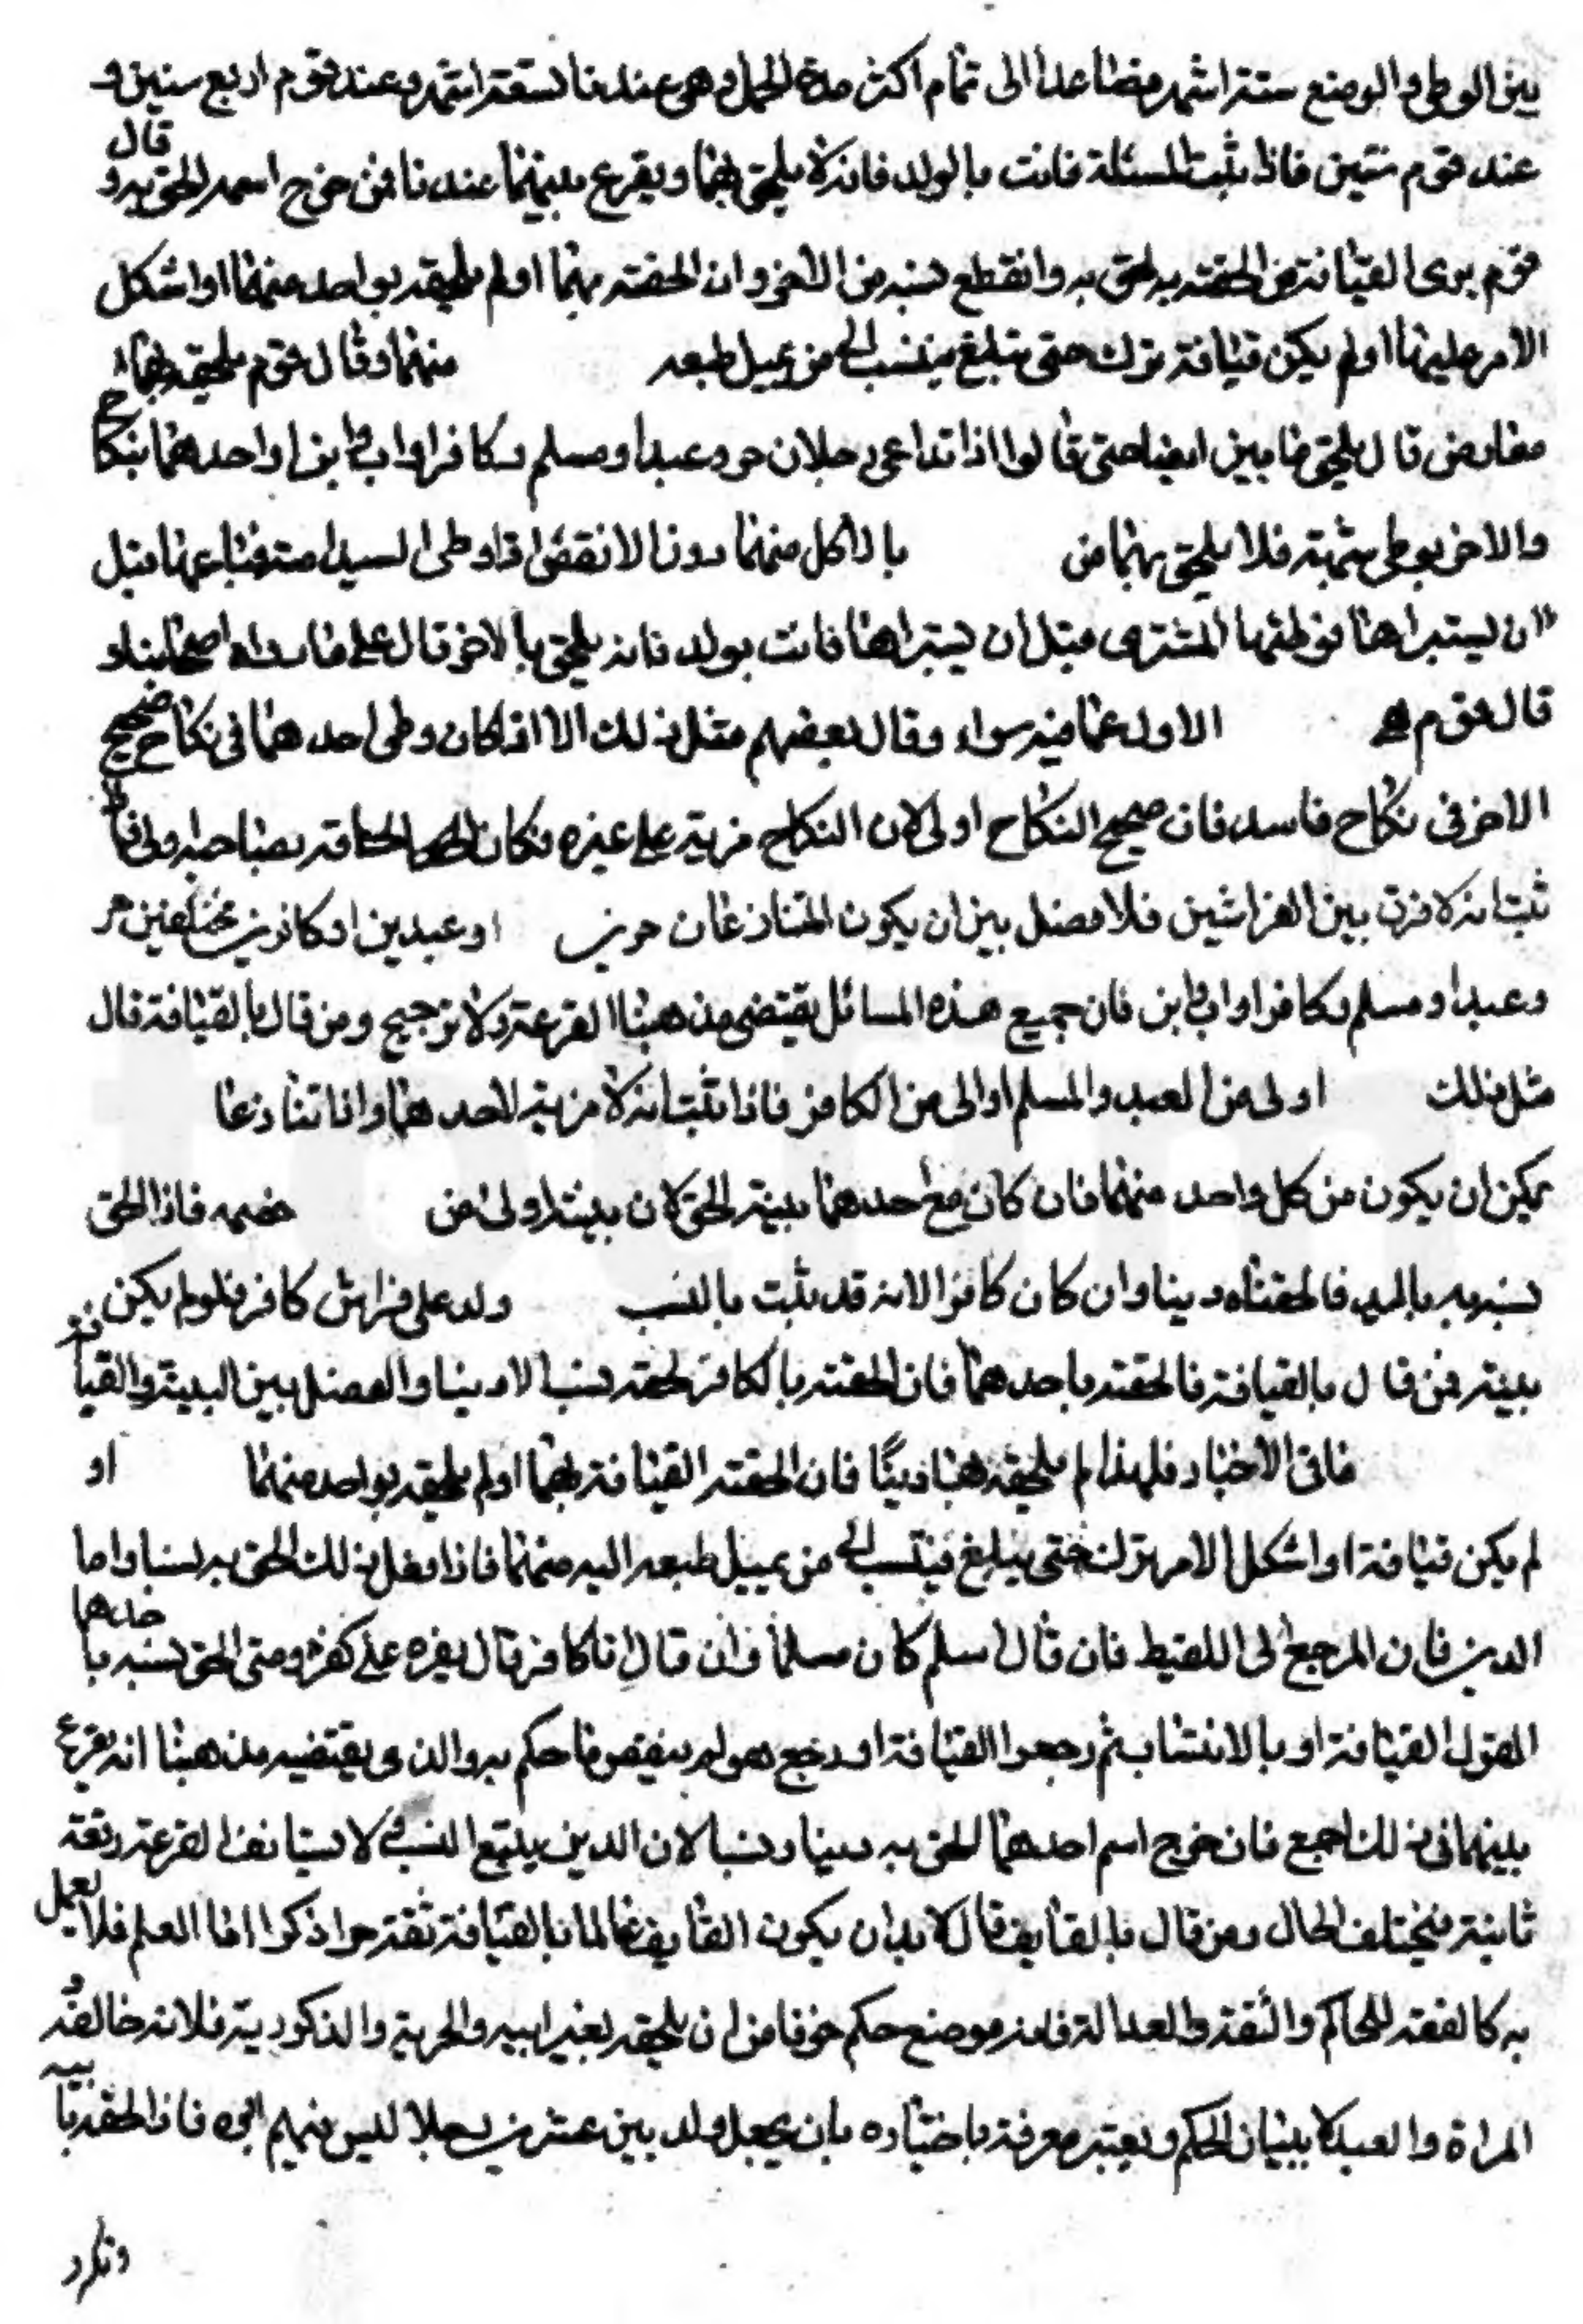 بين الوطي والوضع ستة اشهر فصاعدا الى تمام اكثر مدة الحمل وهى عندنا تسعة اشهر وعند قوم اربع سنين و
عند قوم سنتين فاذا ثبت المسئلة فاتت بالولد فانه لا يلحق بهما ويقرع بينهما عندنا فمن خرج اسمه الحق به وقال
قوم يرى القيافة فمن الحقته به لحق به وانقطع نسبه من الاخر وان الحقته بهما او لم يلحقه بواحد منهما او اشكل
الامر عليها او لم يكن قيافة ترك حتى يبلغ فينتسب الى من يميل طبعه منهما وقال قوم يلحق بهما
قال يلحق بابين ايضا حتى قالوا اذا تداعى رجلان حر وعبد او مسلم وكافر او اب وابن او احدهما بنكاح
والاخر بوطي شبهة فلا يلحق بهما من باد اكل منهما دوننا لانقضى اذا وطى السيد امته فباعها قبل
ان يستبراها فوطئها المشترى قبل ان يستبراها فاتت بولد فانه يلحق بالاخر قال على ما رواه اصحابنا و
قال قوم الاول عما فيه سواء وقال بعضهم مثل ذلك الا اذا كان وطى احدهما فى نكاح صحيح
الاخر فى نكاح فاسد فان صحيح النكاح اولى لان النكاح مزية على غيره فكان الحاقه بصاحبه اولى فاذا
ثبت انه لا فرق بين الفراشين فلا فصل بين ان يكون المتنازعان حرين او عبدين او كافرين مختلفين حر
وعبد او مسلم وكافر او اب وابن فان جميع هذه المسائل يقتضى مذهبنا القرعة ولا ترجيح ومن قال بالقيافة قال
مثل ذلك اولى من العبد والمسلم اولى من الكافر فاذا ثبت انه لا مزية لاحدهما واذا تنازعا
يمكن ان يكون من كل واحد منهما فان كان مع احدهما بينة الحق لان بينته اولى من خصمه فاذا الحق
نسبه به بالبينة فالحقناه دينا وان كان كافرا لانه قد ثبت بالنسب ولد على فراش كافر فلو لم يكن
بينة فمن قال بالقيافة فالحقته باحدهما فان الحقته بالكافر لحقه نسبا لا دينا والفصل بين البينة والقيافة
فاق الاخبار فلهذا لم يلحقه نسبا دينا فان الحقته القيافة بهما او لم يلحقه بواحد منهما او
لم يكن قيافة او اشكل الامر ترك حتى يبلغ فينتسب الى من يميل طبعه اليه منهما فاذا فعل ذلك الحق به نسبا واما
الدين فان المرجع الى اللقيط فان قال اسلم كان مسلما فان قال انا كافر قال يقره على كفره ومتى الحق نسبه باحدهما
القول القيافة او بالانتساب ثم رجعوا القيافة او رجع هو لم ينقض ما حكم به والذى يقتضيه مذهبنا انه يقرع
بينهما فى ذلك اجمع فان خرج اسم احدهما الحق به دينا ونسبا لان الدين يتبع النسب لا يستانف القرعة دفعة
ثانية فيختلف الحال ومن قال بالقايف قال لا بد ان يكون القايف عالما بالقيافة ثقة حرا ذكرا اما العلم فلا يعمل
به كالفقه للحاكم والثقة والعدالة فانه موضع حكم خوفا من ان يلحقه بغير ابيه والحرية والذكورية فلانه خالفه
المراة والعبد لا يبينان الحكم ويعتبر معرفة باختياره بان يجعل ولد بين عشرين رجلا ليس فيهم ابوه فاذا الحقه بابيه
وتكرر